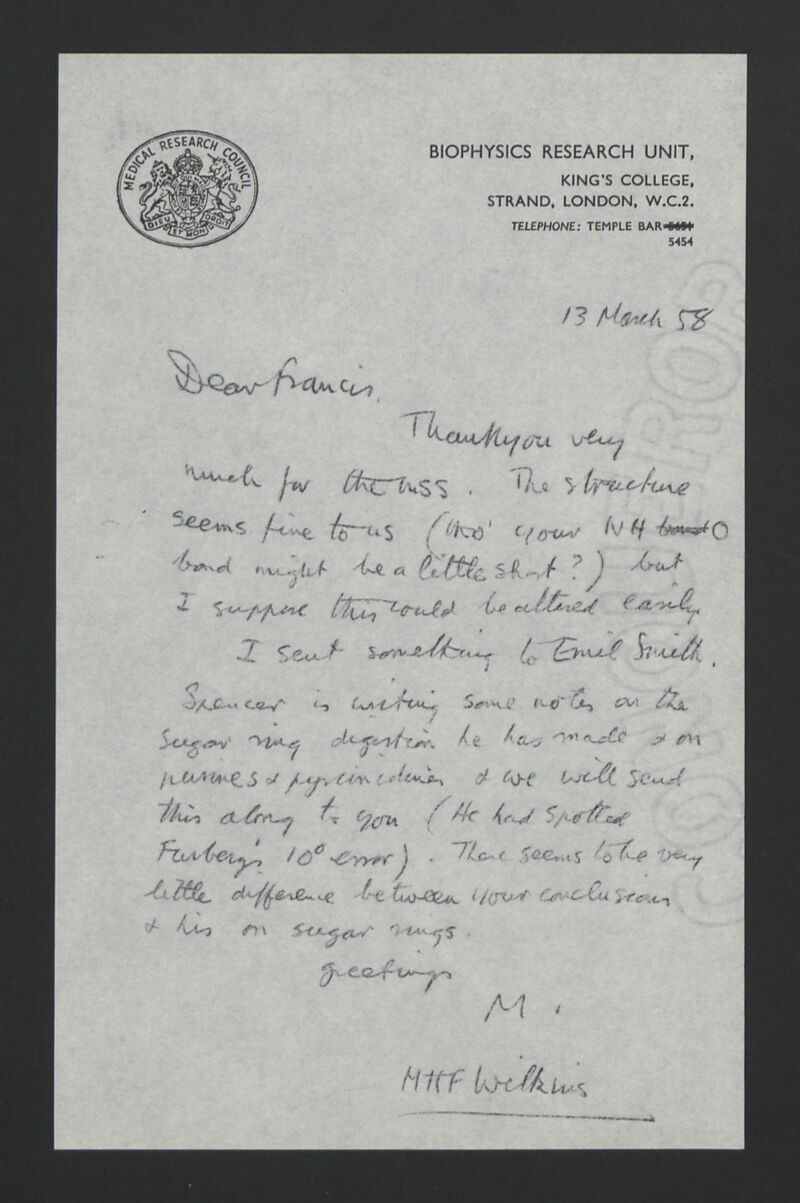 MEDICAL RESEARCH COUNCIL
DIEU ET MON DROIT
BIOPHYSICS RESEARCH UNIT,
KING'S COLLEGE,
STRAND, LONDON, W.C.2.
TELEPHONE: TEMPLE BAR 5651
5454
13 March 58
Dear Francis,
Thankyou very
much for the mss. The structure
seems fine to us (tho' your NH O
bond might be a little short?) but
I suppose this could be altered easily.
I sent something to Emil Smith.
Spencer is writing some notes on the
sugar ring digestion he has made & on
purines & pyrimidines & we will send
this along to you (He had spotted
Furberg's 10° error). There seems to be very
little difference between your conclusions
& his on sugar rings.
greetings
M.
MHF Wilkins